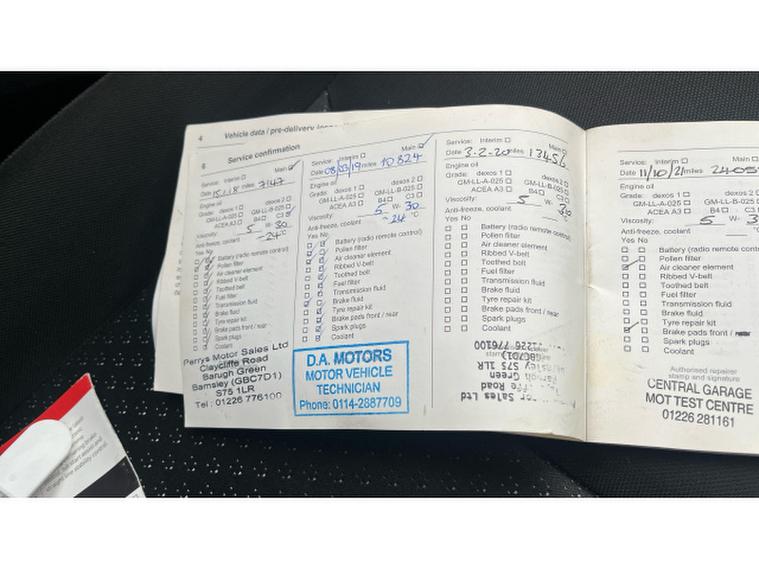 4 Vehicle data / pre-delivery
6 Service confirmation
Service: Interim Main
Date 15.1.18 miles 7147
Engine oil
Grade: dexos 1 dexos 2
GM-LL-A-025 GM-LL-B-025
ACEA A3 B4 C3
Viscosity: 5 W- 30
Anti-freeze, coolant -24 °C
Yes No
Battery (radio remote control)
Pollen filter
Air cleaner element
Ribbed V-belt
Toothed belt
Fuel filter
Transmission fluid
Brake fluid
Tyre repair kit
Brake pads front / rear
Spark plugs
Coolant
Perrys Motor Sales Ltd
Claycliffe Road
Barugh Green
Barnsley (GBC7D1)
S75 1LR
Tel: 01226 776100
Service: Interim Main
Date 08/03/19 miles 10824
Engine oil
Grade: dexos 1 dexos 2
GM-LL-A-025 GM-LL-B-025
ACEA A3 B4 C3
Viscosity: 5 W- 30
Anti-freeze, coolant -24 °C
Yes No
Battery (radio remote control)
Pollen filter
Air cleaner element
Ribbed V-belt
Toothed belt
Fuel filter
Transmission fluid
Brake fluid
Tyre repair kit
Brake pads front / rear
Spark plugs
Coolant
D.A. MOTORS
MOTOR VEHICLE
TECHNICIAN
Phone: 0114-2887709
Service: Interim Main
Date 3-2-20 miles 13456
Engine oil
Grade: dexos 1 dexos 2
GM-LL-A-025 GM-LL-B-025
ACEA A3 B4 C3
Viscosity: 5 W- 30
Anti-freeze, coolant °C
Yes No
Battery (radio remote control)
Pollen filter
Air cleaner element
Ribbed V-belt
Toothed belt
Fuel filter
Transmission fluid
Brake fluid
Tyre repair kit
Brake pads front / rear
Spark plugs
Coolant
Sales Ltd
Road
Green
S75 1LR
(GBC7D1)
01226 776100
Service: Interim Main
Date 11/10/21 miles
Engine oil
Grade: dexos 1 dexos
GM-LL-A-025 GM-LL-B-025
ACEA A3 B4 C3
Viscosity: 5 W-
Anti-freeze, coolant
Yes No
Battery (radio remote
Pollen filter
Air cleaner element
Ribbed V-belt
Toothed belt
Fuel filter
Transmission fluid
Brake fluid
Tyre repair kit
Brake pads front /
Spark plugs
Coolant
Authorised repairer
stamp and signature
CENTRAL GARAGE
MOT TEST CENTRE
01226 281161